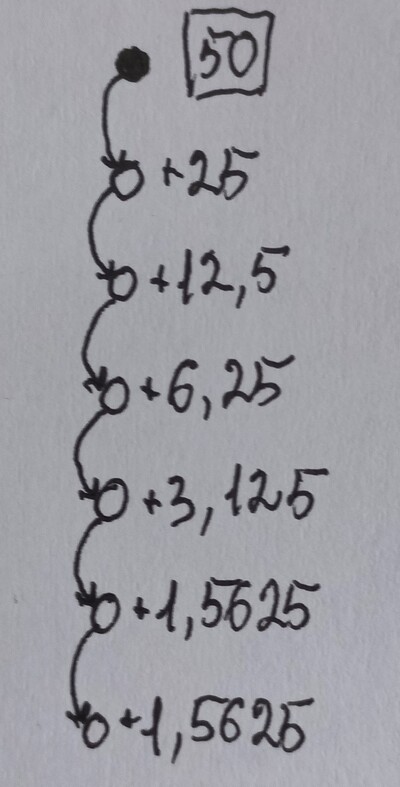 50
+25
+12,5
+6,25
+3,125
+1,5625
+1,5625